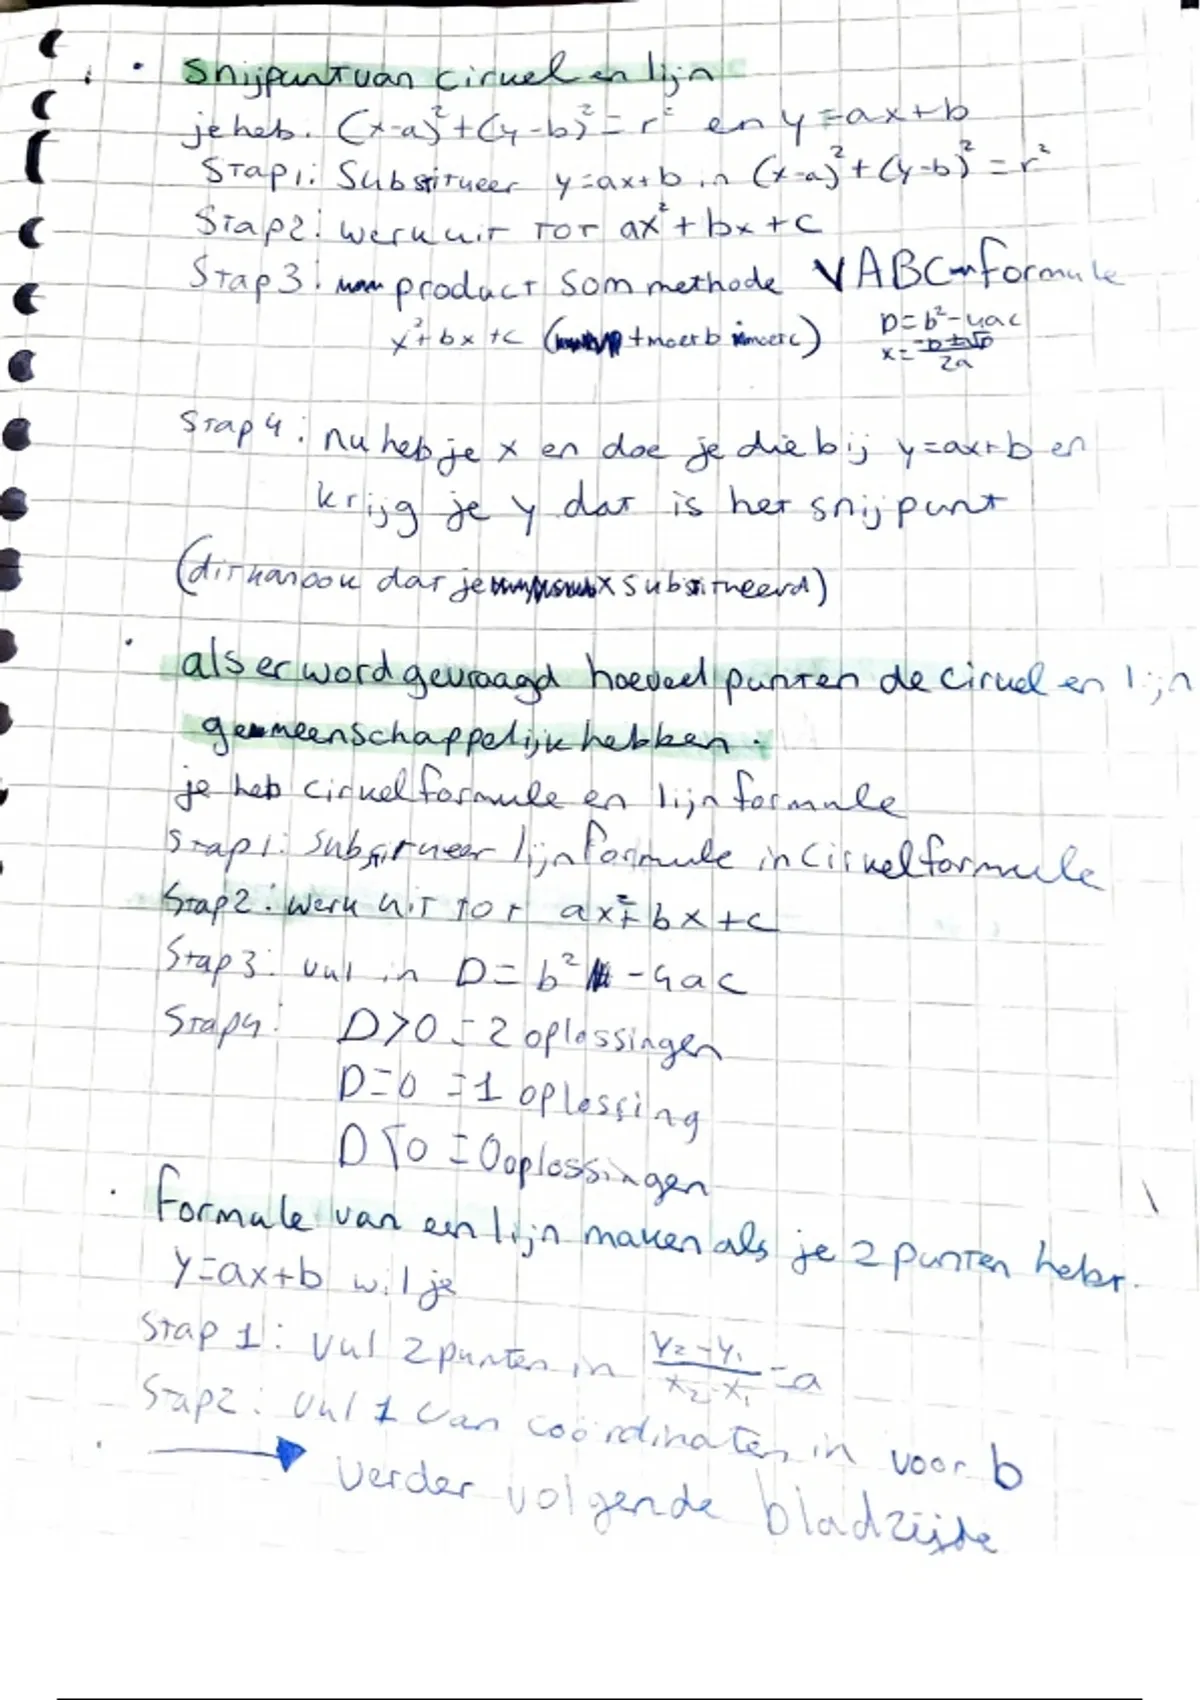 Snijpunt van cirkel en lijn
je heb. (x-a)²+(y-b)²=r² en y=ax+b
Stap1: Substitueer y=ax+b in (x-a)²+(y-b)²=r²
Stap2: werk uit tot ax²+bx+c
Stap3: product som methode V ABC-formule
x²+bx+c ( + moet b moet c) D=b²-4ac
x= -b±√D / 2a
Stap4: nu heb je x en doe je die bij y=ax+b en
krijg je y dat is het snijpunt
(dit kan ook dat je x substitueerd)
als er word gevraagd hoeveel punten de cirkel en lijn
gemeenschappelijk hebben.
je heb cirkelformule en lijnformule
Stap1: Substitueer lijnformule in cirkelformule
Stap2: werk uit tot ax²+bx+c
Stap3: vul in D=b²-4ac
Stap4: D>0 = 2 oplossingen
D=0 = 1 oplossing
D<0 = 0 oplossingen
Formule van een lijn maken als je 2 punten hebt.
y=ax+b wil je
Stap 1: vul 2 punten in y₂-y₁ / x₂-x₁ = a
Stap2: vul 1 van coördinaten in voor b
→ verder volgende bladzijde